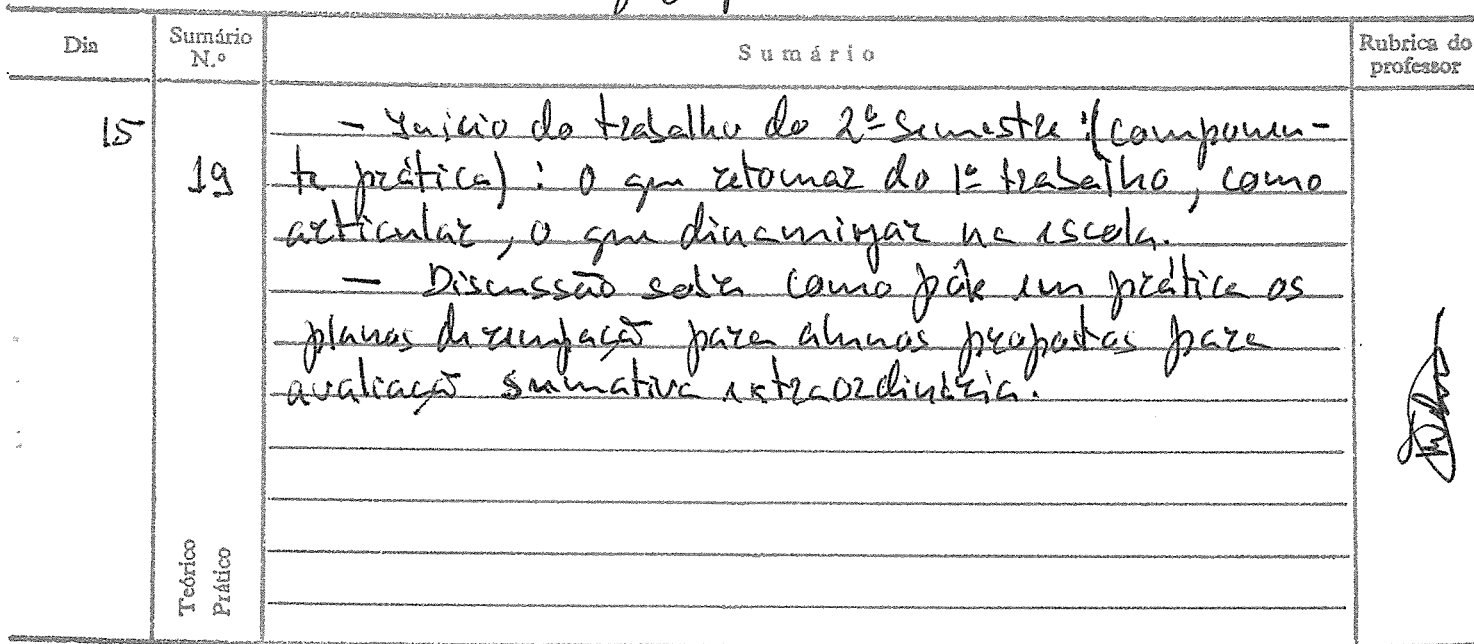 Dia
Sumário N.º
Sumário
Rubrica do professor
15
19
- Início do trabalho do 2º Semestre: (componen-
te prática): o que retomar do 1º trabalho, como
articular, o que dinamizar na escola.
- Discussão sobre como pôr em prática os
planos de para alunos propostos para
avaliação sumativa extraordinária.
Teórico
Prático